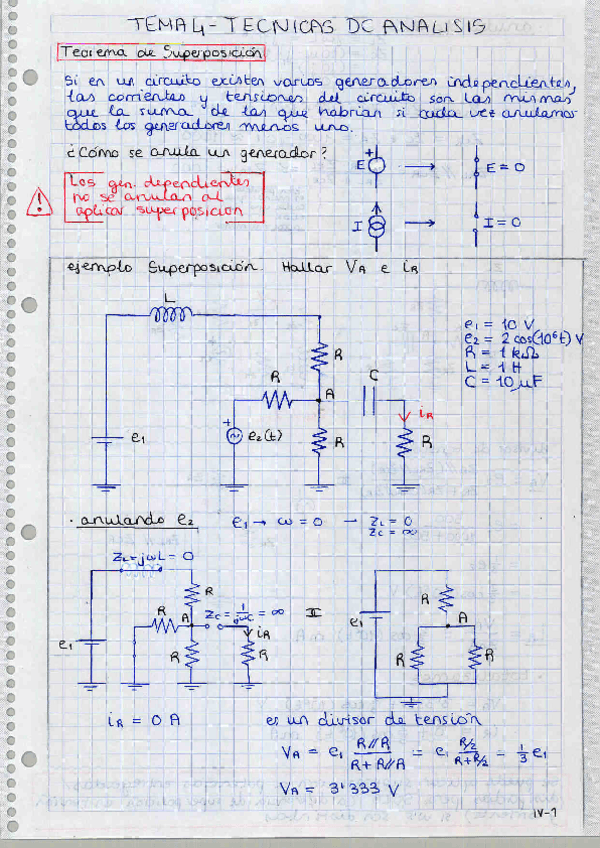 TEMA 4 - TECNICAS DC ANALISIS
Teorema de Superposición
Si en un circuito existen varios generadores independientes,
las corrientes y tensiones del circuito son las mismas
que la suma de las que habrían si cada vez anulamos
todos los generadores menos uno.
¿Cómo se anula un generador?
+
E
E = 0
Los gen. dependientes
no se anulan al
aplicar superposición
!
I
I = 0
ejemplo Superposición. Hallar VA e iR
L
e1 = 10 V
e2 = 2 cos(10⁶t) V
R = 1 kΩ
L = 1 H
C = 10 μF
R
R
C
A
iR
+
e1
e2(t)
R
R
· anulando e2
e1 → ω = 0 → ZL = 0
ZC = ∞
ZL = jωL = 0
R
R
A
ZC = 1/jωC = ∞
iR
e1
R
R
R
A
e1
R
R
iR = 0 A
es un divisor de tensión
VA = e1 R//R / R + R//R = e1 R/2 / R + R/2 = 1/3 e1
VA = 3'333 V
IV-1